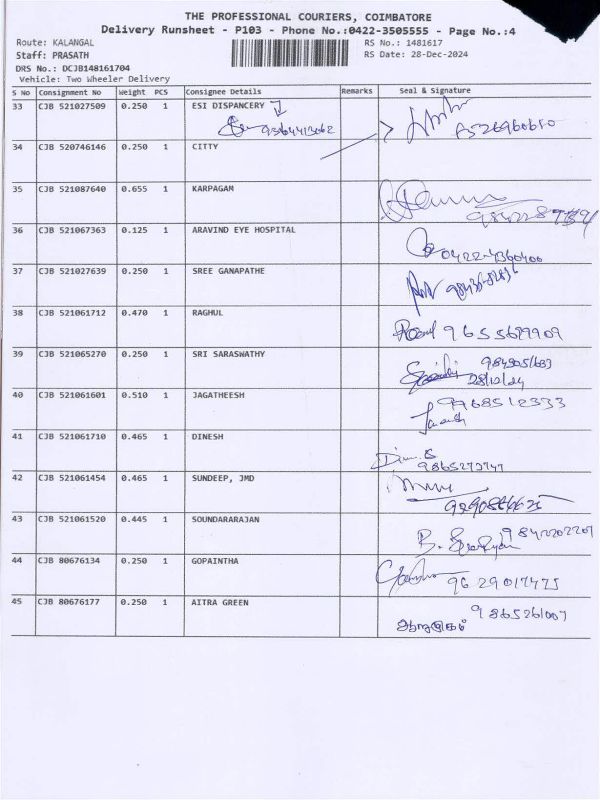 THE PROFESSIONAL COURIERS, COIMBATORE
Delivery Runsheet - P103 - Phone No.:0422-3505555 - Page No.:4
Route: KALANGAL RS No.: 1481617
Staff: PRASATH RS Date: 28-Dec-2024
DRS No.: DCJB148161704
Vehicle: Two Wheeler Delivery
S No Consignment No Weight PCS Consignee Details Remarks Seal & Signature
33 CJB 521027509 0.250 1 ESI DISPANCERY
34 CJB 520746146 0.250 1 CITTY
35 CJB 521087640 0.655 1 KARPAGAM
36 CJB 521067363 0.125 1 ARAVIND EYE HOSPITAL
0422-4360400
37 CJB 521027639 0.250 1 SREE GANAPATHE
38 CJB 521061712 0.470 1 RAGHUL
39 CJB 521065270 0.250 1 SRI SARASWATHY
28/12/24
40 CJB 521061601 0.510 1 JAGATHEESH
9968512333
41 CJB 521061710 0.465 1 DINESH
42 CJB 521061454 0.465 1 SUNDEEP, JMD
43 CJB 521061520 0.445 1 SOUNDARARAJAN
9842202201
44 CJB 80676134 0.250 1 GOPAINTHA
9629017475
45 CJB 80676177 0.250 1 AITRA GREEN
9865261007
ஆறுமுகம்